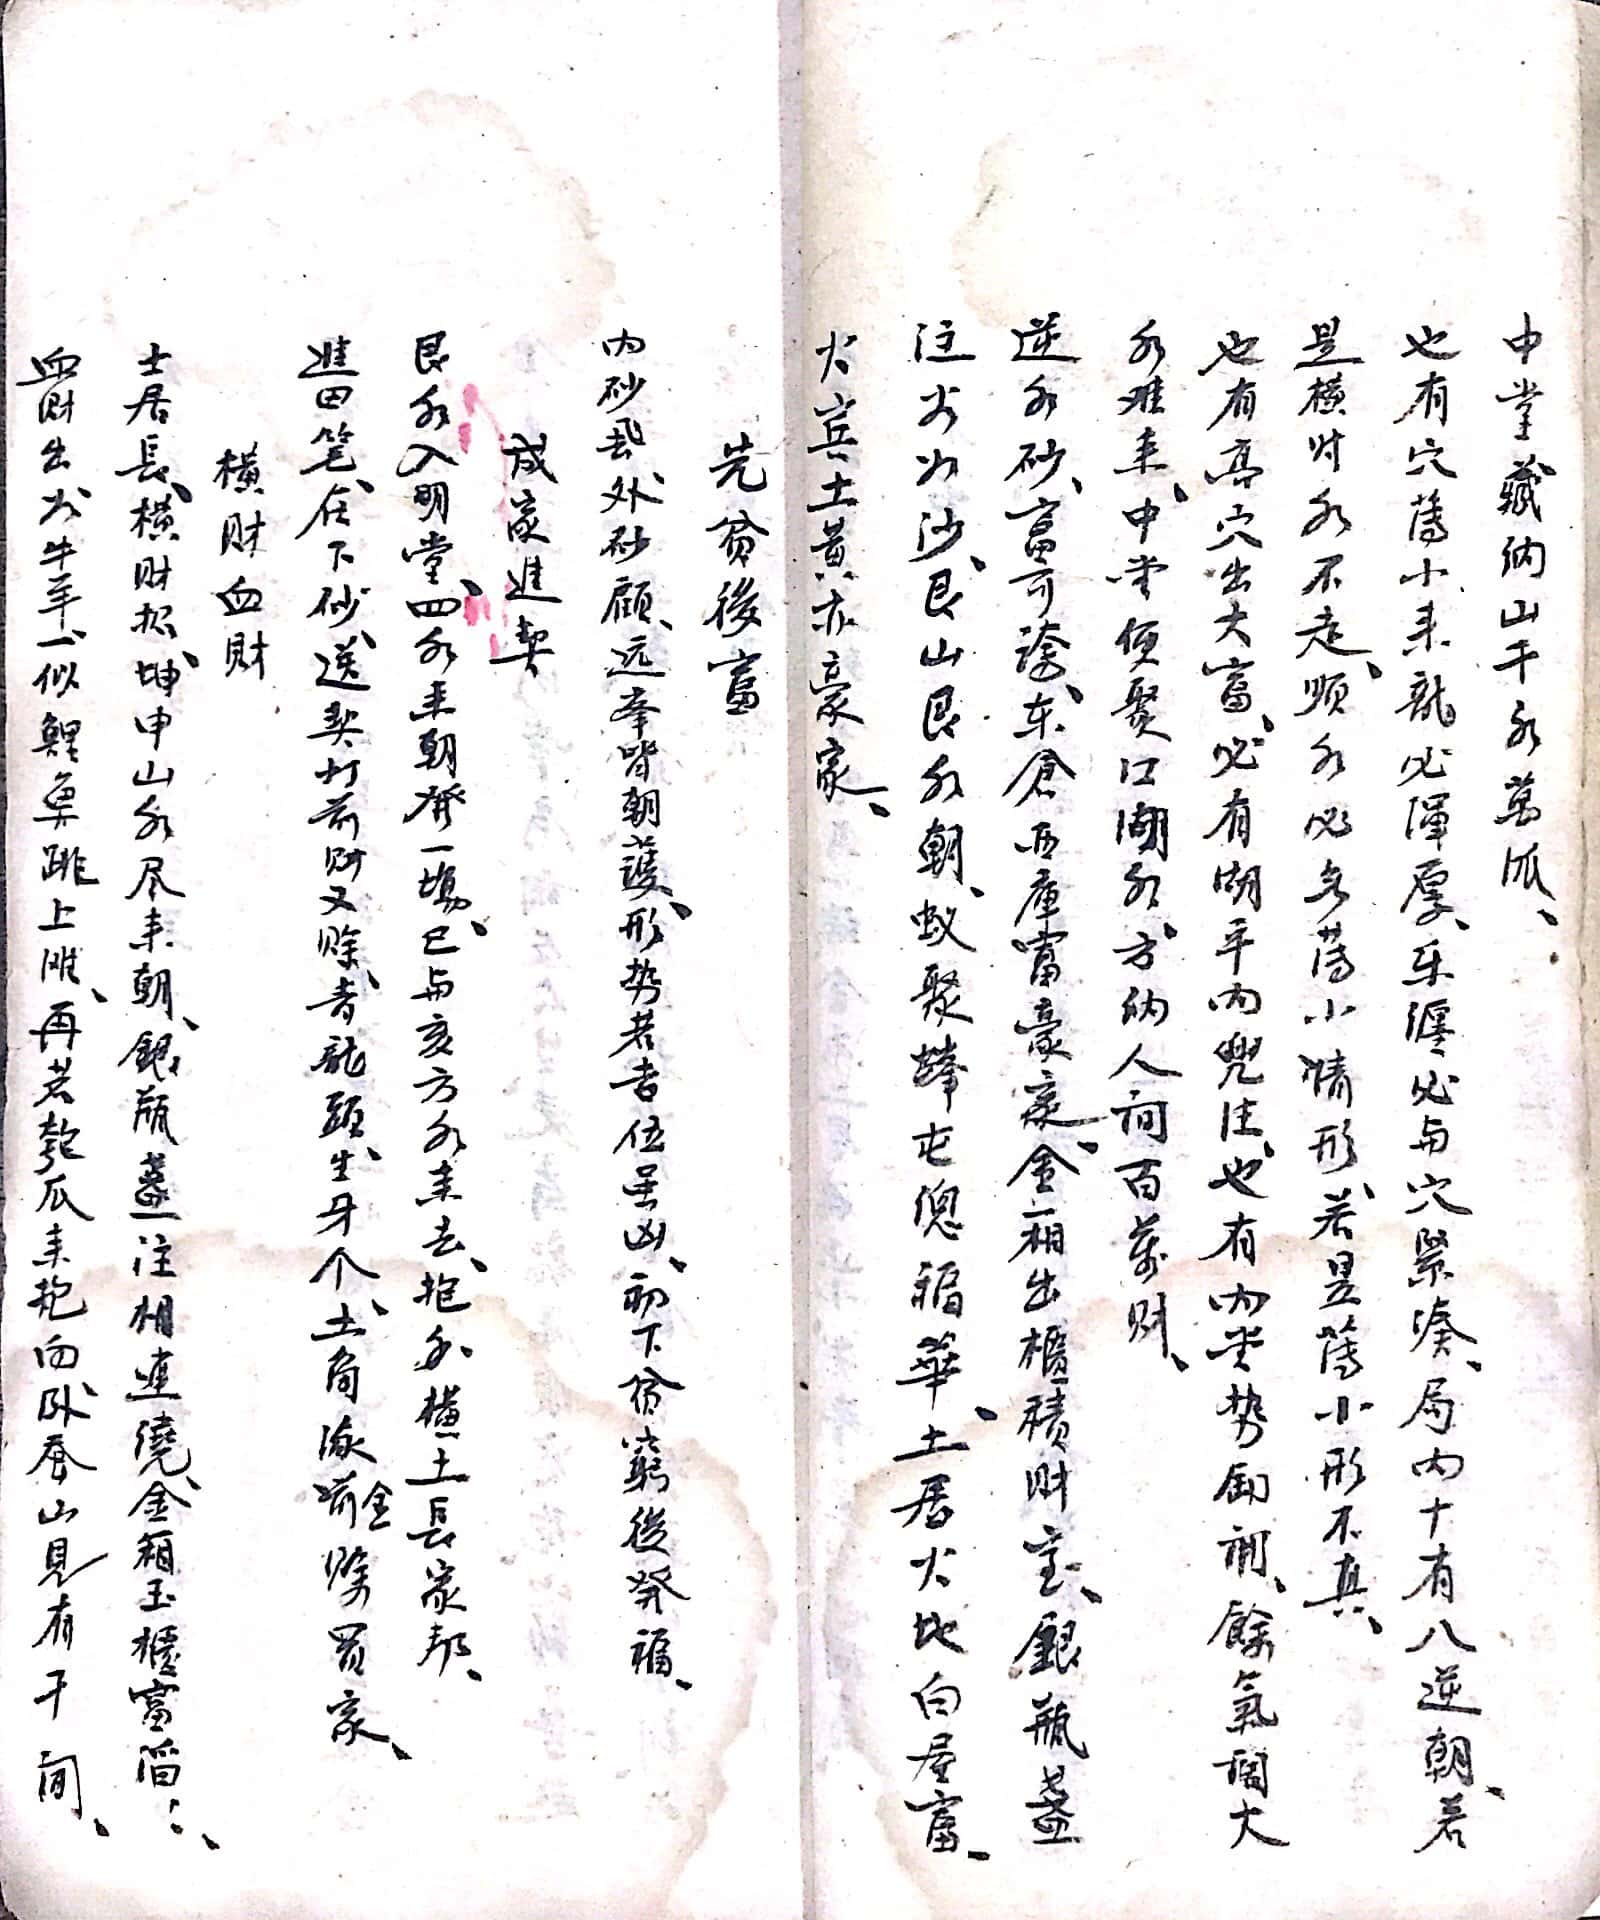 中堂藏納山千水萬派、
也有穴薄小来龍必渾厚、乐纏必与穴緊凑、局内十有八逆朝、若
是横財水不走、順水必多薄小情形、若是薄小形不真、
也有高穴出大富、必有湖平内兜注、也有内堂势團聚、餘氣闊大
水难来、中堂便聚江湖水、方納人间百萬財、
逆水砂、富可誇、东倉西庫富豪家、金箱出櫃積財宝、銀瓶盞
注出沙、艮山艮水朝、蚁聚蜂屯總福華、土居火地白屋富、
火宾土黄亦豪家、
先貧後富
内砂飛外砂顧、远峯皆朝護、形势若吉伍虽凶、初下貧窮後発福、
成家進契
艮水入明堂、四水来朝発一塲、巳与亥方水来去、抱水横土長家邦、
進田笔、在下砂、送契灯前財又賒、青龍頭、生牙个、土角流金賒買家、
横財血財
士居長、横財招、坤申山水尽来朝、銀瓶盞注相連繞、金箱玉櫃富滔〻、
血財出于牛羊、一似鯉魚跳上灘、再若匏瓜来抱向、卧蚕山見有千间、